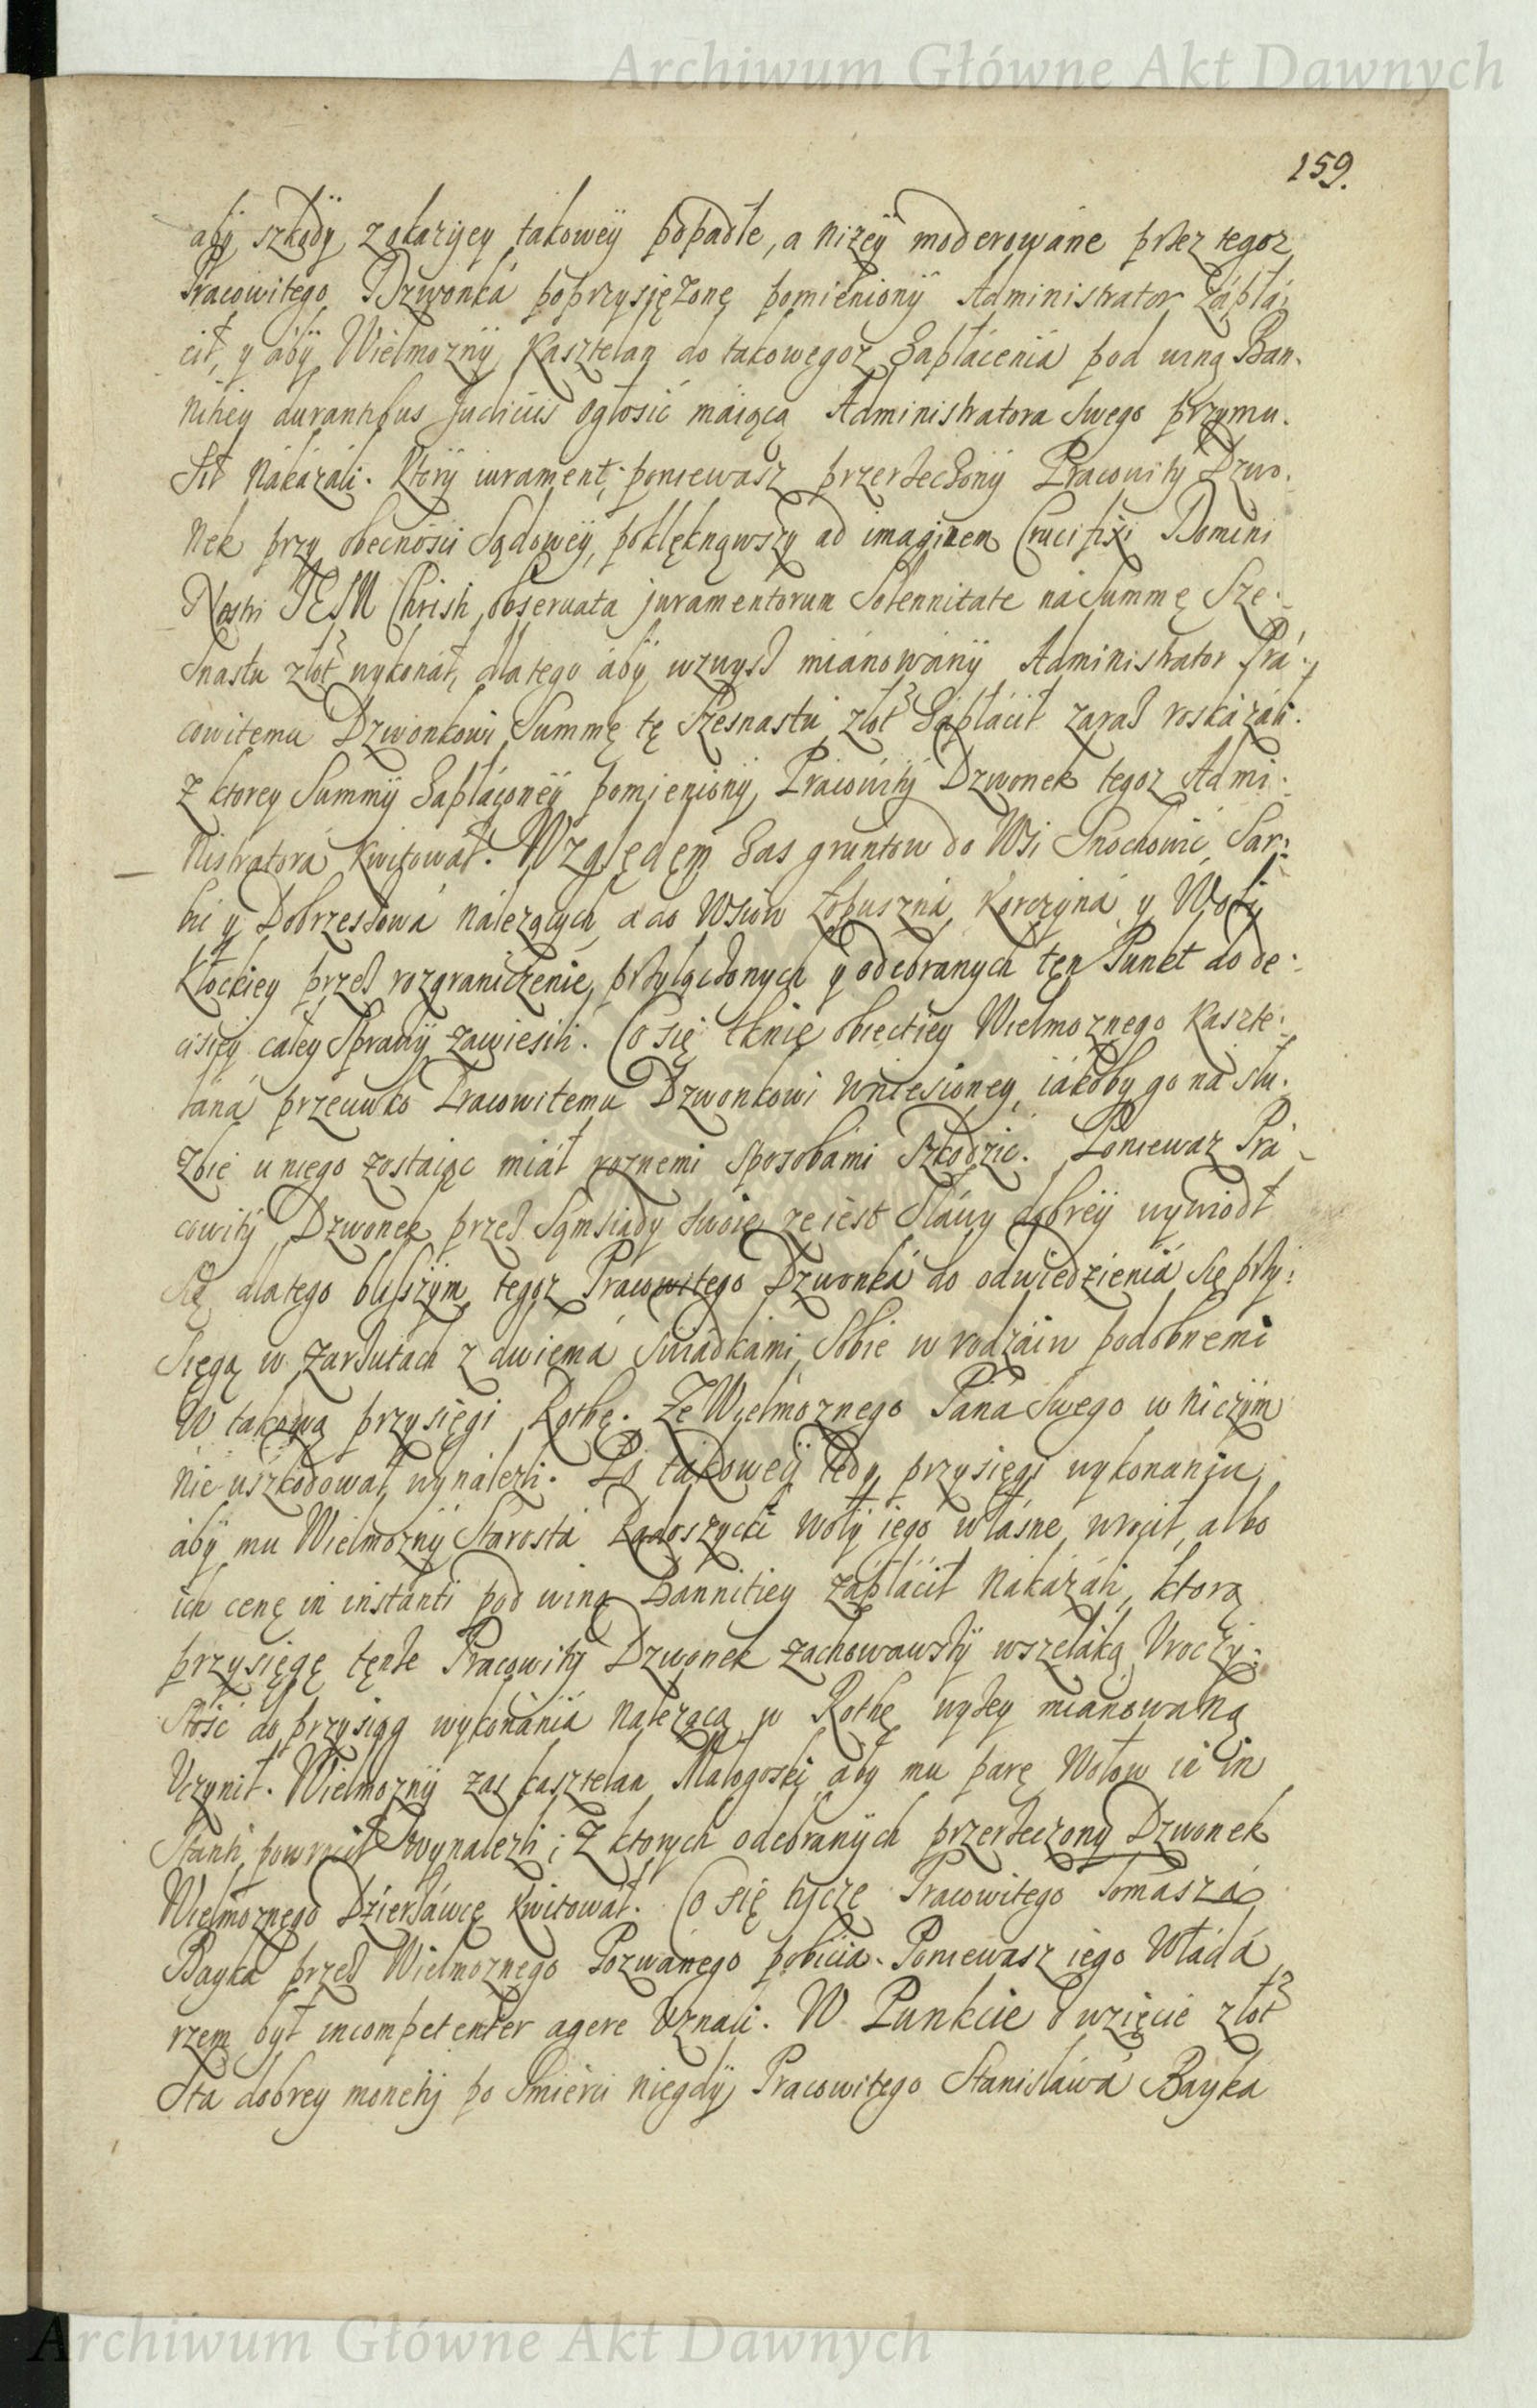 Archiwum Główne Akt Dawnych
159.
aby szkody z okazyey takowey popadłe, a niżey moderowane przez tegoz
Pracowitego Dzwonka poprzysiężone pomieniony Administrator zápłá-
cił, y aby Wielmożny Kasztelan do takowegoz zapłácenia pod winą Ban-
nitiey durantibus Judicijs ogłosić maiącą Administratora Swego przymu-
sił nákázáli. Ktory iurament, poniewasz przerzeczony Pracowity Dzwo-
nek przy obecności Sądowey, poklęknąwszy ad imaginem Crucifixi Domini
Nostri JESU Christi observata juramentorum Solennitate ná Summę Sze-
snastu złot wykonáł, dla tego áby wzwysz miánowány Administrator Prá-
cowitemu Dzwonkowi Summę tę Szesnastu złot zápłácił zaraz roskázáli.
Z ktorey Summy zapłáconey pomieniony Pracowity Dzwonek tegoz Admi-
nistratorá kwitował. Względem zas gruntow do Wsi Snochowic, Sar-
bic y Dobrzeszowa należących, a do Wsiow Łopuszná, Korczyná y Woli
Kłockiey przez rozgraniczenie przyłączonych y odebranych ten Punkt do de-
cisiey całey Sprawy zawiesili. Co się tknie obiectiey Wielmożnego Kaszte-
láná przeciwko Pracowitemu Dzwonkowi wniesioney, iákoby go ná słu-
zbie u niego zostaiąc miáł roznemi sposobámi szkodzić. Poniewaz Prá-
cowity Dzwonek przez Sąmsiady swoie ze iest Sławy dobrey wywiodł
się, dlatego blisszym tegoz Pracowitego Dzwonká do odwiedzienia się przy-
sięgą w zarzutach z dwiemá Swiadkámi Sobie w rodzáiu podobnemi
W takową przysięgi Rothę. Ze Wielmożnego Páná Swego w niczym
nie uszkodował wynálezli. Po tákowey tedy przysięgi wykonaniu,
áby mu Wielmożny Starostá Radoszycki Woły iego własne wrocił, albo
ich cenę in instanti pod winą Bannitiey zápłácił nákázáli, ktorą
przysięgę tenze Pracowity Dzwonek záchowawszy wszeláką Uroczy-
stość do przysiąg wykonania należącą w Rothę wyżey miánowáną
Uczynił. Wielmożny zas kasztelan Małogoski aby mu parę Wołow in in
stanti powrocił wynalezli; Z ktorych odebranych przerzeczony Dzwonek
Wielmożnego Dzierżáwcę kwitowáł. Co się tycze Pracowitego Tomaszá
Bayka przez Wielmożnego Pozwánego pobicia. Poniewasz iego Włádá
rzem był incompetenter agere Uznali. W Punkcie o wzięcie złot
Sta dobrey monety po Smierci niegdy Pracowitego Stanisławá Bayka
Archiwum Główne Akt Dawnych